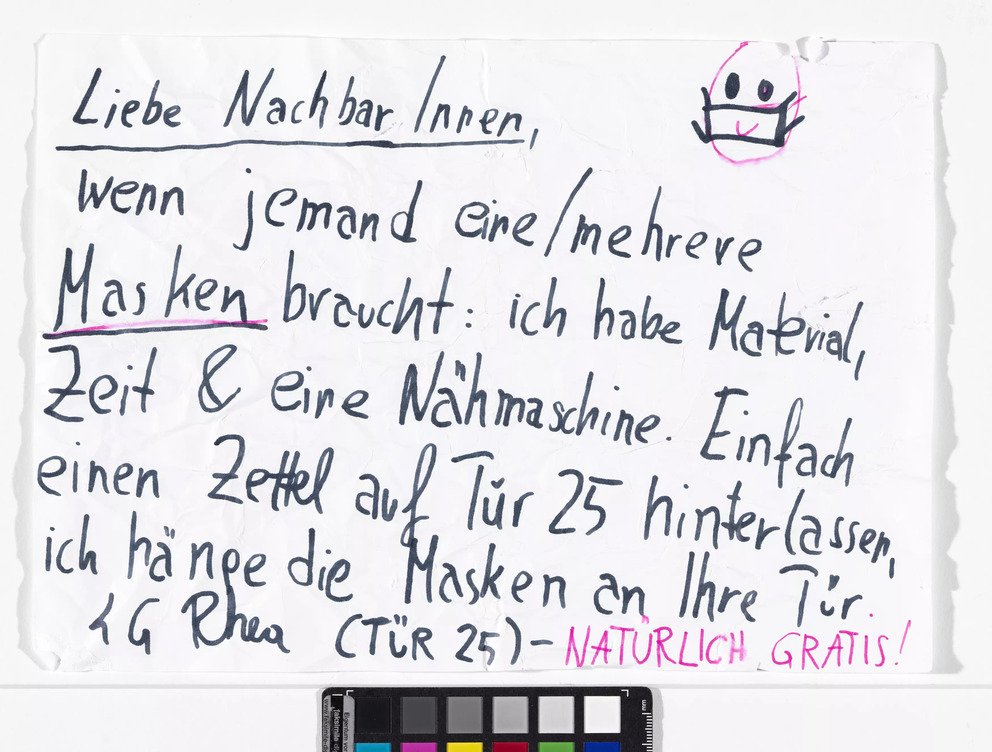 Liebe NachbarInnen,
wenn jemand eine/mehrere
Masken braucht: ich habe Material,
Zeit & eine Nähmaschine. Einfach
einen Zettel auf Tür 25 hinterlassen,
ich hänge die Masken an Ihre Tür.
LG Rhea (TÜR 25) – NATÜRLICH GRATIS!